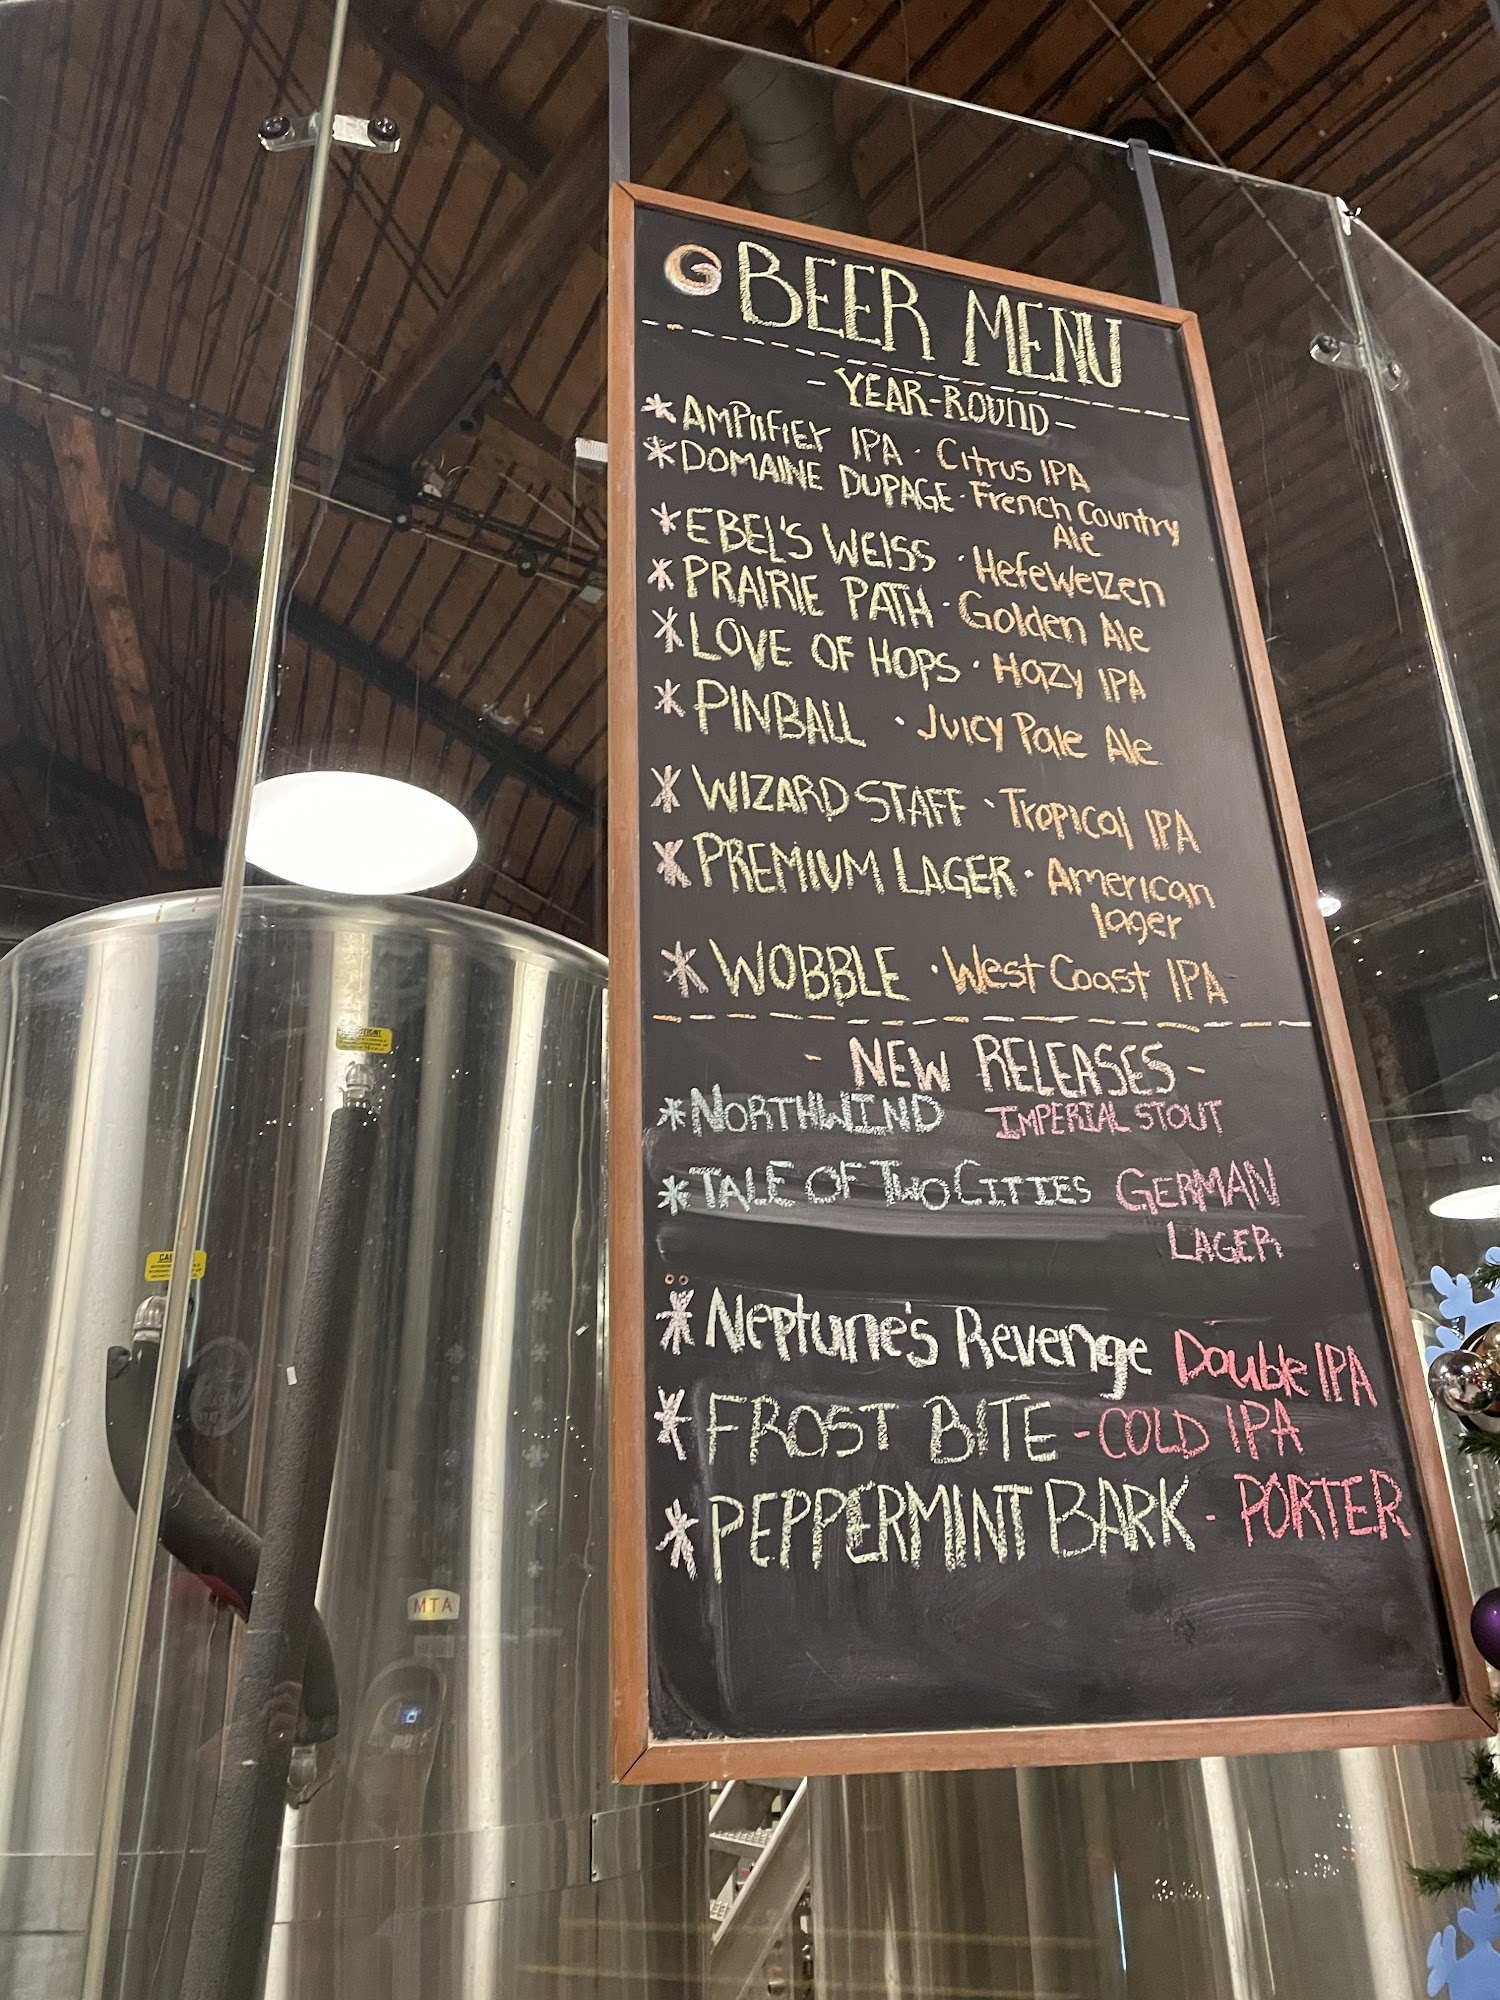 G BEER MENU
- YEAR-ROUND -
* AMPLIFIER IPA · Citrus IPA
* DOMAINE DUPAGE · French Country
Ale
* EBEL'S WEISS · Hefeweizen
* PRAIRIE PATH · Golden Ale
* LOVE OF HOPS · Hazy IPA
* PINBALL · Juicy Pale Ale
* WIZARD STAFF · Tropical IPA
* PREMIUM LAGER · American
lager
* WOBBLE · West Coast IPA
- NEW RELEASES -
* NORTHWIND IMPERIAL STOUT
* TALE OF TWO CITIES GERMAN
LAGER
* Neptune's Revenge Double IPA
* FROST BITE - COLD IPA
* PEPPERMINT BARK - PORTER
MTA